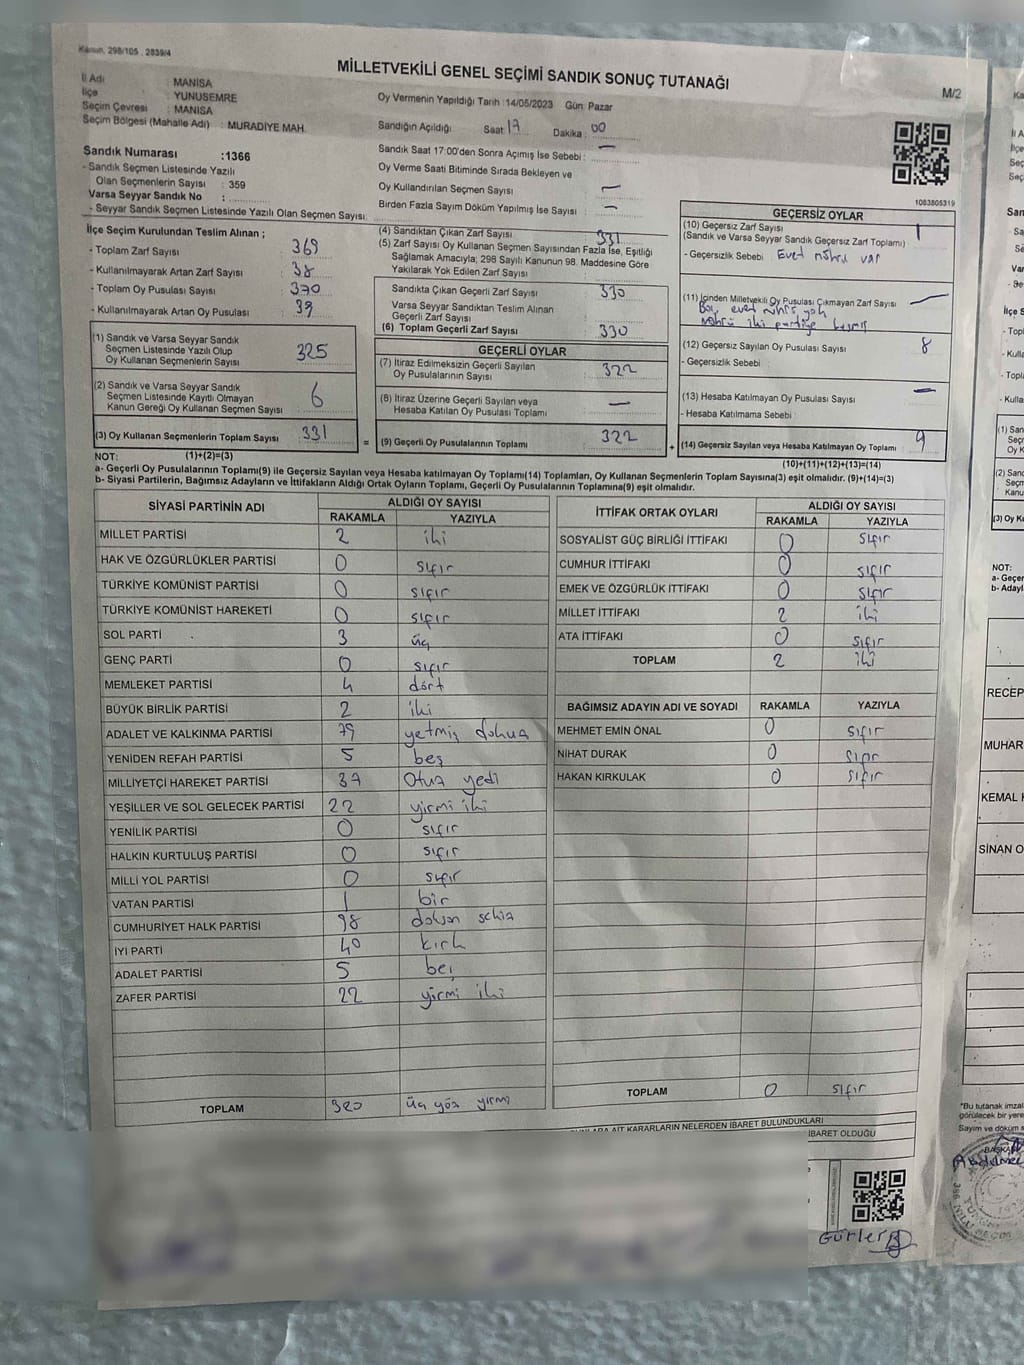 Kanun, 298/105 , 2839/4
MİLLETVEKİLİ GENEL SEÇİMİ SANDIK SONUÇ TUTANAĞI
M/2
İl Adı : MANİSA
İlçe : YUNUSEMRE
Seçim Çevresi : MANİSA
Seçim Bölgesi (Mahalle Adı) : MURADİYE MAH.
Oy Vermenin Yapıldığı Tarih :14/05/2023 Gün: Pazar
Sandığın Açıldığı Saat 17 Dakika : 00
Sandık Saat 17:00'den Sonra Açımış İse Sebebi : —
Oy Verme Saati Bitiminde Sırada Bekleyen ve
Oy Kullandırılan Seçmen Sayısı —
Birden Fazla Sayım Döküm Yapılmış İse Sayısı —
Sandık Numarası :1366
- Sandık Seçmen Listesinde Yazılı
Olan Seçmenlerin Sayısı : 359
Varsa Seyyar Sandık No :
- Seyyar Sandık Seçmen Listesinde Yazılı Olan Seçmen Sayısı:
1083805319
İlçe Seçim Kurulundan Teslim Alınan ;
- Toplam Zarf Sayısı : 369
- Kullanılmayarak Artan Zarf Sayısı : 38
- Toplam Oy Pusulası Sayısı : 370
- Kullanılmayarak Artan Oy Pusulası : 39
(1) Sandık ve Varsa Seyyar Sandık
Seçmen Listesinde Yazılı Olup
Oy Kullanan Seçmenlerin Sayısı 325
(2) Sandık ve Varsa Seyyar Sandık
Seçmen Listesinde Kayıtlı Olmayan
Kanun Gereği Oy Kullanan Seçmen Sayısı 6
(3) Oy Kullanan Seçmenlerin Toplam Sayısı 331
(4) Sandıktan Çıkan Zarf Sayısı 331
(5) Zarf Sayısı Oy Kullanan Seçmen Sayısından Fazla İse, Eşitliği
Sağlamak Amacıyla; 298 Sayılı Kanunun 98. Maddesine Göre
Yakılarak Yok Edilen Zarf Sayısı :
Sandıkta Çıkan Geçerli Zarf Sayısı 330
Varsa Seyyar Sandıktan Teslim Alınan
Geçerli Zarf Sayısı
(6) Toplam Geçerli Zarf Sayısı 330
GEÇERLİ OYLAR
(7) İtiraz Edilmeksizin Geçerli Sayılan
Oy Pusulalarının Sayısı 322
(8) İtiraz Üzerine Geçerli Sayılan veya
Hesaba Katılan Oy Pusulası Toplamı —
= (9) Geçerli Oy Pusulalarının Toplamı 322
GEÇERSİZ OYLAR
(10) Geçersiz Zarf Sayısı 1
(Sandık ve Varsa Seyyar Sandık Geçersiz Zarf Toplamı)
- Geçersizlik Sebebi Evet mührü var
(11) İçinden Milletvekili Oy Pusulası Çıkmayan Zarf Sayısı —
Boş, evet mührü yok
mührü iki partiye basmış
(12) Geçersiz Sayılan Oy Pusulası Sayısı 8
- Geçersizlik Sebebi
(13) Hesaba Katılmayan Oy Pusulası Sayısı —
- Hesaba Katılmama Sebebi
+ (14) Geçersiz Sayılan veya Hesaba Katılmayan Oy Toplamı 9
(10)+(11)+(12)+(13)=(14)
NOT: (1)+(2)=(3)
a- Geçerli Oy Pusulalarının Toplamı(9) ile Geçersiz Sayılan veya Hesaba katılmayan Oy Toplamı(14) Toplamları, Oy Kullanan Seçmenlerin Toplam Sayısına(3) eşit olmalıdır. (9)+(14)=(3)
b- Siyasi Partilerin, Bağımsız Adayların ve İttifakların Aldığı Ortak Oyların Toplamı, Geçerli Oy Pusulalarının Toplamına(9) eşit olmalıdır.
SİYASİ PARTİNİN ADI ALDIĞI OY SAYISI
RAKAMLA YAZIYLA
MİLLET PARTİSİ 2 iki
HAK VE ÖZGÜRLÜKLER PARTİSİ 0 sıfır
TÜRKİYE KOMÜNİST PARTİSİ 0 sıfır
TÜRKİYE KOMÜNİST HAREKETİ 0 sıfır
SOL PARTİ 3 üç
GENÇ PARTİ 0 sıfır
MEMLEKET PARTİSİ 4 dört
BÜYÜK BİRLİK PARTİSİ 2 iki
ADALET VE KALKINMA PARTİSİ 79 yetmiş dokuz
YENİDEN REFAH PARTİSİ 5 beş
MİLLİYETÇİ HAREKET PARTİSİ 37 Otuz yedi
YEŞİLLER VE SOL GELECEK PARTİSİ 22 yirmi iki
YENİLİK PARTİSİ 0 sıfır
HALKIN KURTULUŞ PARTİSİ 0 sıfır
MİLLİ YOL PARTİSİ 0 sıfır
VATAN PARTİSİ 1 bir
CUMHURİYET HALK PARTİSİ 98 doksan sekiz
İYİ PARTİ 40 kırk
ADALET PARTİSİ 5 beş
ZAFER PARTİSİ 22 yirmi iki
TOPLAM 320 üç yüz yirmi
İTTİFAK ORTAK OYLARI ALDIĞI OY SAYISI
RAKAMLA YAZIYLA
SOSYALİST GÜÇ BİRLİĞİ İTTİFAKI 0 sıfır
CUMHUR İTTİFAKI 0 sıfır
EMEK VE ÖZGÜRLÜK İTTİFAKI 0 sıfır
MİLLET İTTİFAKI 2 iki
ATA İTTİFAKI 0 sıfır
TOPLAM 2 iki
BAĞIMSIZ ADAYIN ADI VE SOYADI RAKAMLA YAZIYLA
MEHMET EMİN ÖNAL 0 sıfır
NİHAT DURAK 0 sıfır
HAKAN KIRKULAK 0 sıfır
TOPLAM 0 sıfır
AİT KARARLARIN NELERDEN İBARET BULUNDUKLARI
İBARET OLDUĞU
Gürler
NOT:
a- Geçer
b- Adayl
RECEP
MUHAR
KEMAL
SİNAN O
*Bu tutanak imzal
görülecek bir yere
Sayım ve döküm s
BAŞKAN